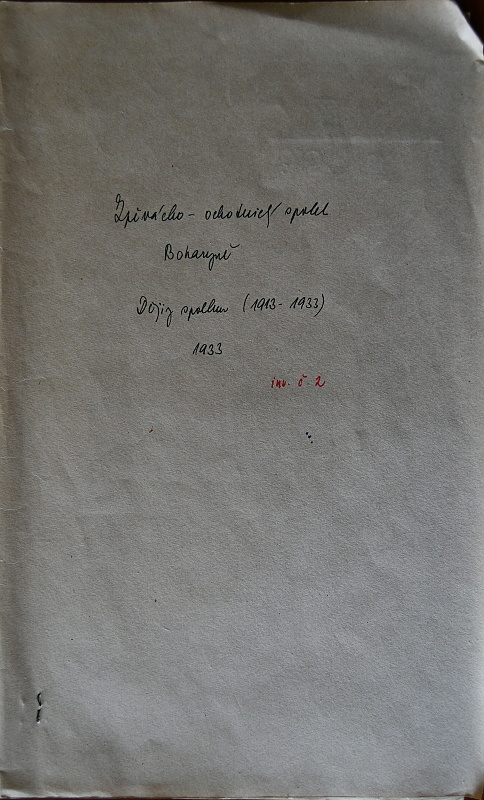 Zpěvácko-ochotnický spolek
Boharyně
Dějiny spolku (1913-1933)
1933
inv. č. 2